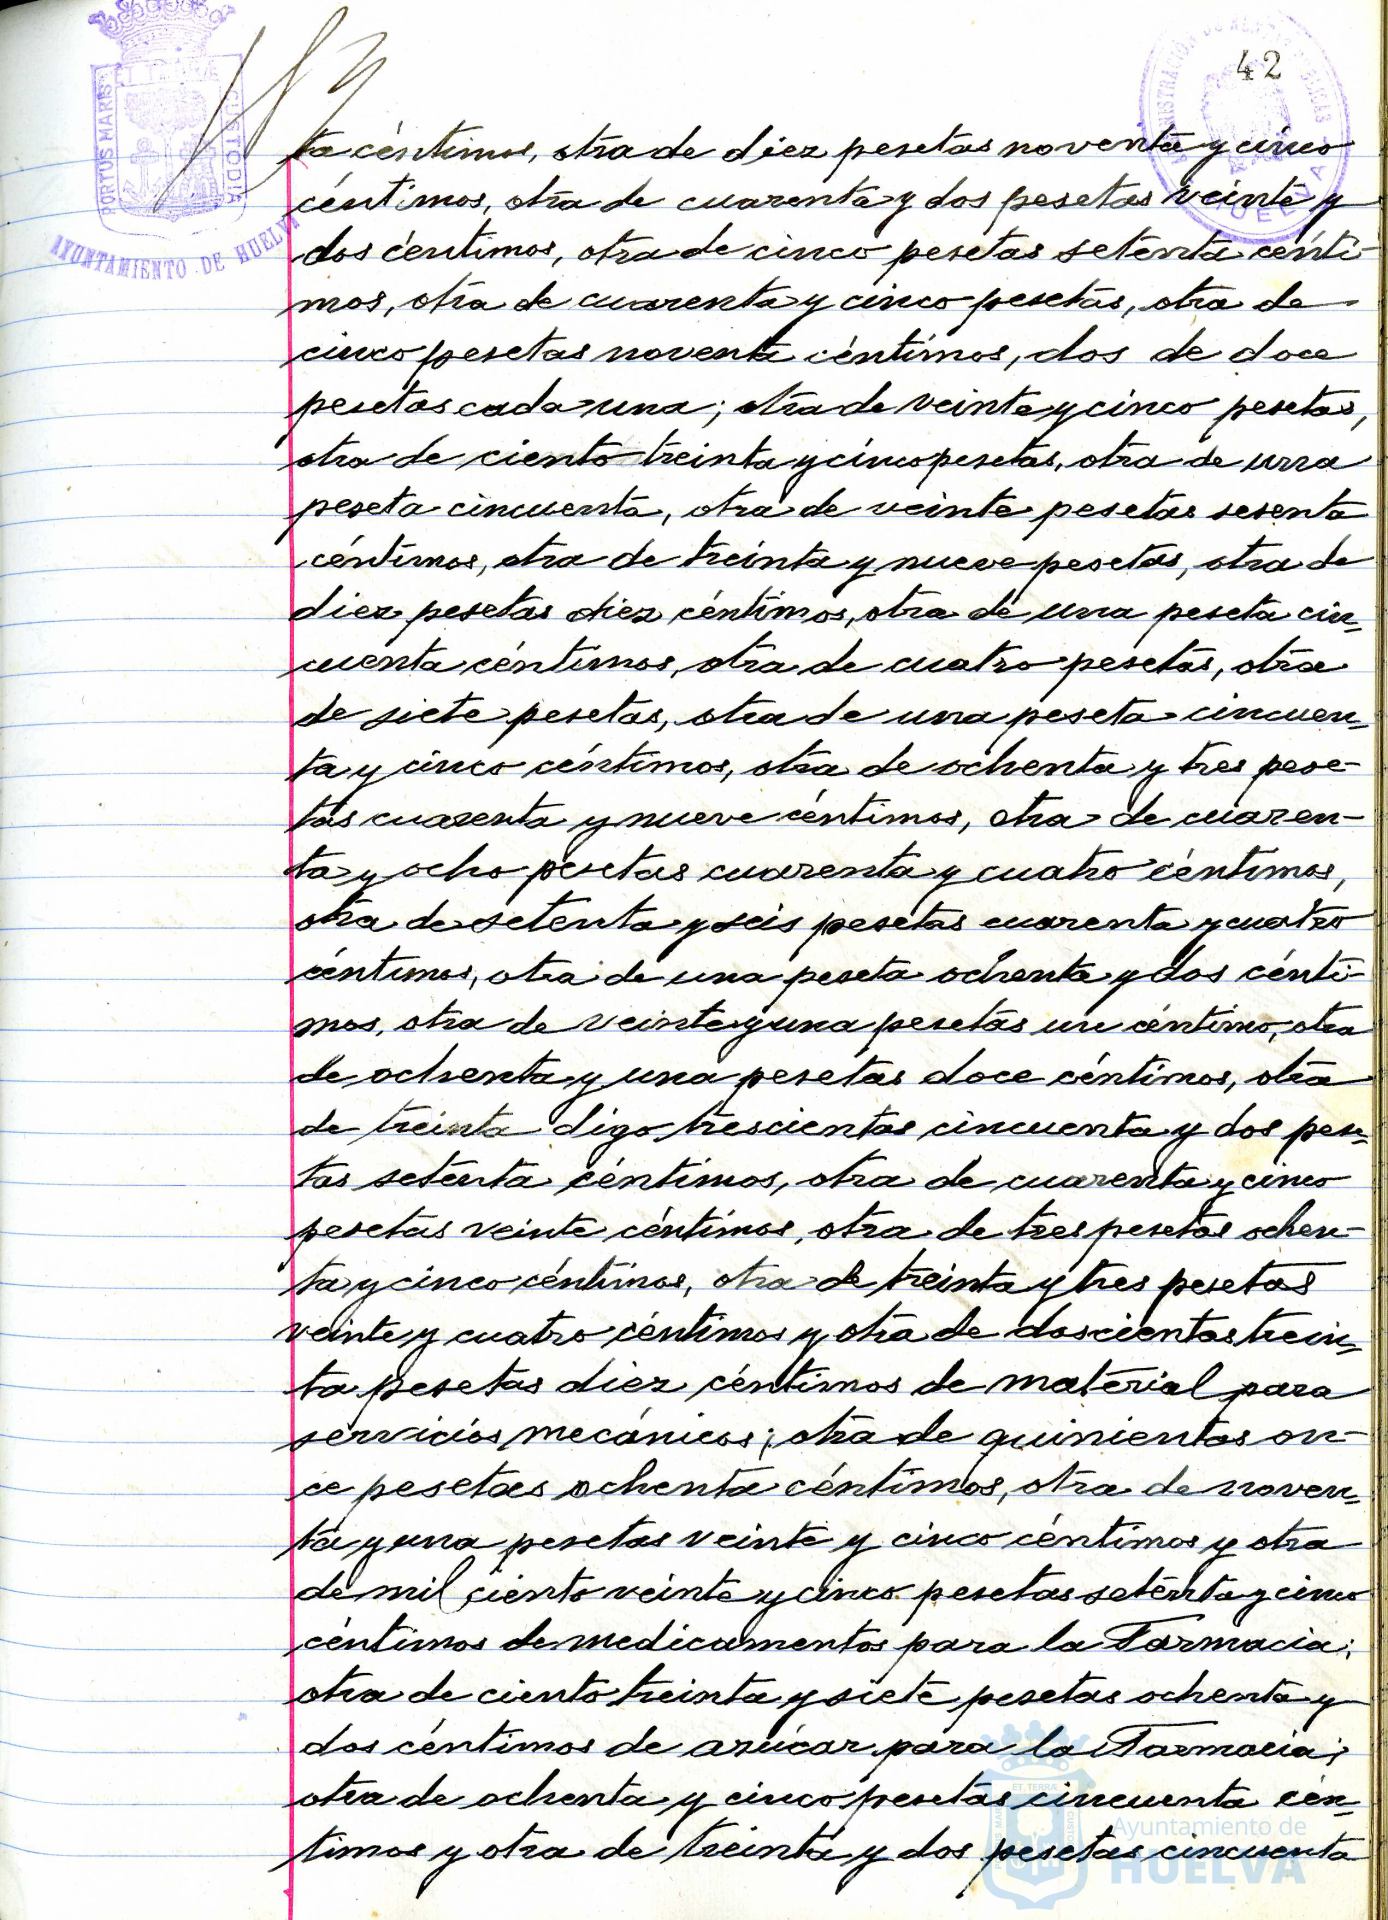 42
PORTUS MARIS
ET TERRÆ
CUSTODIA
AYUNTAMIENTO DE HUELVA
HUELVA
ta céntimos, otra de diez pesetas noventa y cinco
céntimos, otra de cuarenta y dos pesetas veinte y
dos céntimos, otra de cinco pesetas setenta cénti-
mos, otra de cuarenta y cinco pesetas, otra de
cinco pesetas noventa céntimos, dos de doce
pesetas cada una; otra de veinte y cinco pesetas,
otra de ciento treinta y cinco pesetas, otra de una
peseta cincuenta, otra de veinte pesetas sesenta
céntimos, otra de treinta y nueve pesetas, otra de
diez pesetas diez céntimos, otra de una peseta cin-
cuenta céntimos, otra de cuatro pesetas, otra
de siete pesetas, otra de una peseta cincuen-
ta y cinco céntimos, otra de ochenta y tres pese-
tas cuarenta y nueve céntimos, otra de cuaren-
ta y ocho pesetas cuarenta y cuatro céntimos,
otra de setenta y seis pesetas cuarenta y cuatro
céntimos, otra de una peseta ochenta y dos cénti-
mos, otra de veinte y una pesetas un céntimo, otra
de ochenta y una pesetas doce céntimos, otra
de treinta digo trescientas cincuenta y dos pese-
tas setenta céntimos, otra de cuarenta y cinco
pesetas veinte céntimos, otra de tres pesetas ochen-
ta y cinco céntimos, otra de treinta y tres pesetas
veinte y cuatro céntimos y otra de doscientas trein-
ta pesetas diez céntimos de material para
servicios mecánicos; otra de quinientas on-
ce pesetas ochenta céntimos, otra de noven-
ta y una pesetas veinte y cinco céntimos y otra
de mil ciento veinte y cinco pesetas setenta y cinco
céntimos de medicamentos para la Farmacia;
otra de ciento treinta y siete pesetas ochenta y
dos céntimos de azúcar para la Farmacia;
otra de ochenta y cinco pesetas cincuenta cén-
timos y otra de treinta y dos pesetas cincuenta
Ayuntamiento de
HUELVA